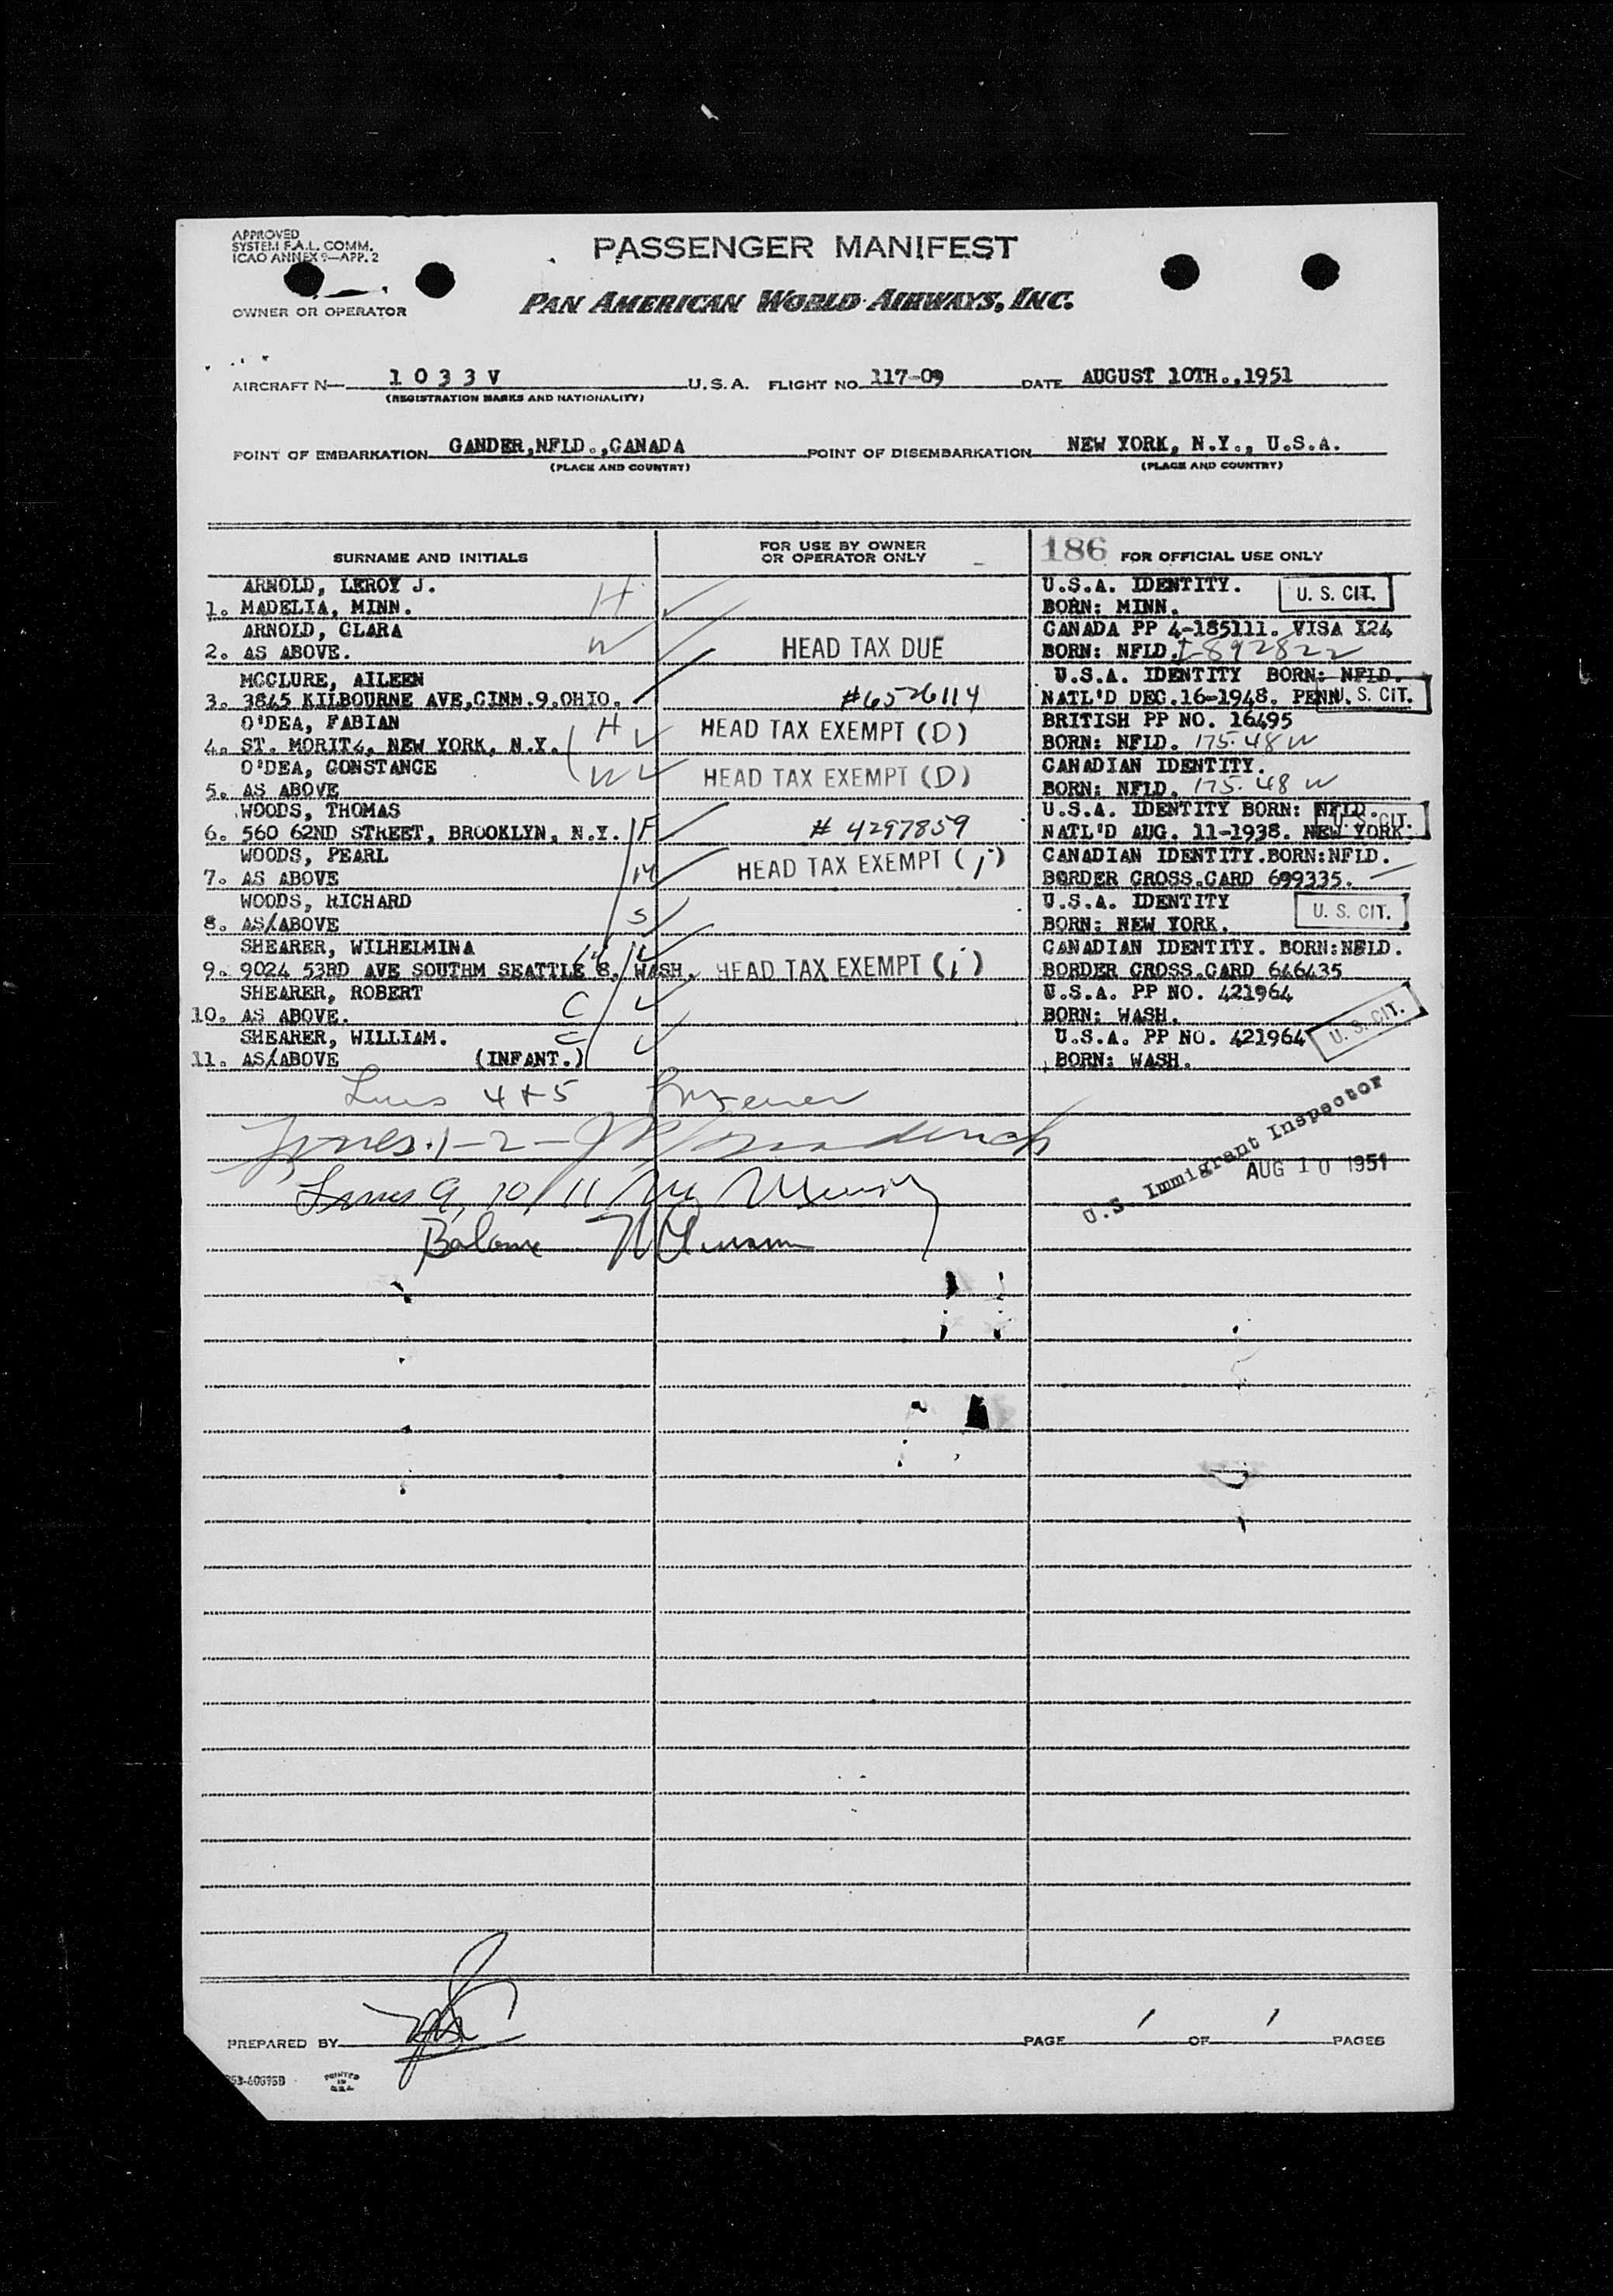 APPROVED
SYSTEM F.A.L. COMM.
ICAO ANNEX 9—APP. 2
PASSENGER MANIFEST
PAN AMERICAN WORLD AIRWAYS, INC.
OWNER OR OPERATOR
AIRCRAFT N— 1 0 3 3 V U.S.A. FLIGHT NO. 117-09 DATE AUGUST 10TH.,1951
(REGISTRATION MARKS AND NATIONALITY)
POINT OF EMBARKATION GANDER,NFLD.,CANADA POINT OF DISEMBARKATION NEW YORK, N.Y., U.S.A.
(PLACE AND COUNTRY) (PLACE AND COUNTRY)
SURNAME AND INITIALS FOR USE BY OWNER OR OPERATOR ONLY 186 FOR OFFICIAL USE ONLY
ARNOLD, LEROY J. H U.S.A. IDENTITY. U. S. CIT.
1. MADELIA, MINN. BORN: MINN.
ARNOLD, CLARA W CANADA PP 4-185111. VISA I24
2. AS ABOVE. HEAD TAX DUE BORN: NFLD. I-892822
MCCLURE, AILEEN U.S.A. IDENTITY BORN: NFLD.
3. 3845 KILBOURNE AVE,CINN.9.OHIO. #6526114 NATL'D DEC.16-1948. PENN. U. S. CIT.
O'DEA, FABIAN H HEAD TAX EXEMPT (D) BRITISH PP NO. 16495
4. ST. MORITZ, NEW YORK, N.Y. BORN: NFLD. 175.48 W
O'DEA, CONSTANCE W HEAD TAX EXEMPT (D) CANADIAN IDENTITY.
5. AS ABOVE BORN: NFLD. 175.48 W
WOODS, THOMAS U.S.A. IDENTITY BORN: NFLD. U. S. CIT.
6. 560 62ND STREET, BROOKLYN, N.Y. F # 4297859 NATL'D AUG. 11-1938. NEW YORK.
WOODS, PEARL M HEAD TAX EXEMPT (i) CANADIAN IDENTITY.BORN:NFLD.
7. AS ABOVE BORDER CROSS.CARD 699335.
WOODS, RICHARD S U.S.A. IDENTITY U. S. CIT.
8. AS/ABOVE BORN: NEW YORK.
SHEARER, WILHELMINA CANADIAN IDENTITY. BORN:NFLD.
9. 9024 53RD AVE SOUTHM SEATTLE 8, WASH. HEAD TAX EXEMPT (i) BORDER CROSS.CARD 646435
SHEARER, ROBERT C U.S.A. PP NO. 421964
10. AS ABOVE. BORN: WASH. U. S. CIT.
SHEARER, WILLIAM. C U.S.A. PP NO. 421964
11. AS/ABOVE (INFANT.) BORN: WASH.
Lines 4 + 5
Lines 1-2-
Lines 9, 10, 11
Balance
U.S. Immigrant Inspector
AUG 10 1951
PREPARED BY PAGE 1 OF 1 PAGES
PRINTED
IN
U.S.A.